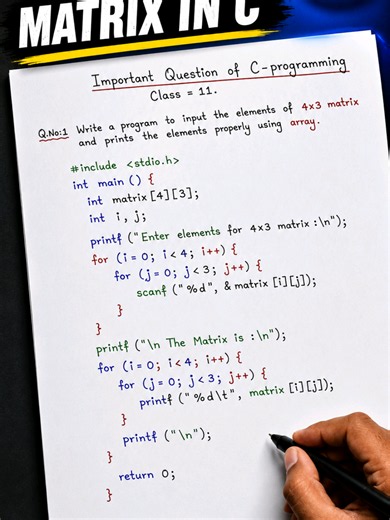 MATRIX IN C
Important Question of C-programming
Class = 11.
Q.No:1 Write a program to input the elements of 4x3 matrix
and prints the elements properly using array.
#include <stdio.h>
int main () {
int matrix [4][3];
int i, j;
printf ("Enter elements for 4x3 matrix :\n");
for (i = 0; i < 4; i++) {
for (j = 0; j < 3; j++) {
scanf ("%d", & matrix [i][j]);
}
}
printf ("\n The Matrix is :\n");
for (i = 0; i < 4; i++) {
for (j = 0; j < 3; j++) {
printf ("%d\t", matrix [i][j]);
}
printf ("\n");
}
return 0;
}